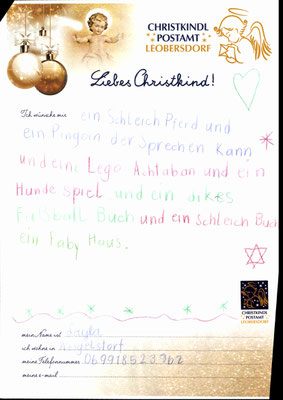 CHRISTKINDL
POSTAMT
LEOBERSDORF
Liebes Christkind!
Ich wünsche mir ein Schleich Pferd und
ein Pingoin der Sprechen Kann
und eine Lego Achtaban und ein
Hunde spiel und ein dikes
Fußball Buch und ein Schleich Buch
ein Faby Haus.
CHRISTKINDL
POSTAMT
LEOBERSDORF
mein Name ist
ich wohne in
meine Telefonnummer 06991852
meine e-mail